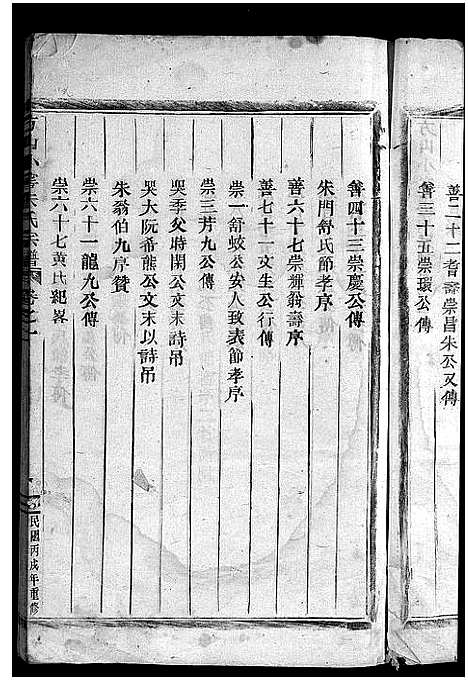 善二十二耆 崇昌朱公又傳
善三十五崇環公傳
善四十三崇慶公傳
朱門舒氏節孝序
善六十七崇輝翁壽序
善七十一文生公行傳
崇一舒蛟公安人致表節孝序
崇三芳九公傳
吳季父時開公文末以詩吊
吳大阮希熊公文末以詩吊
朱翁伯九序贊
崇六十一龍九公傳
崇六十七黃氏紀畧
方山 朱氏宗譜 卷之一 民國丙戌年重修